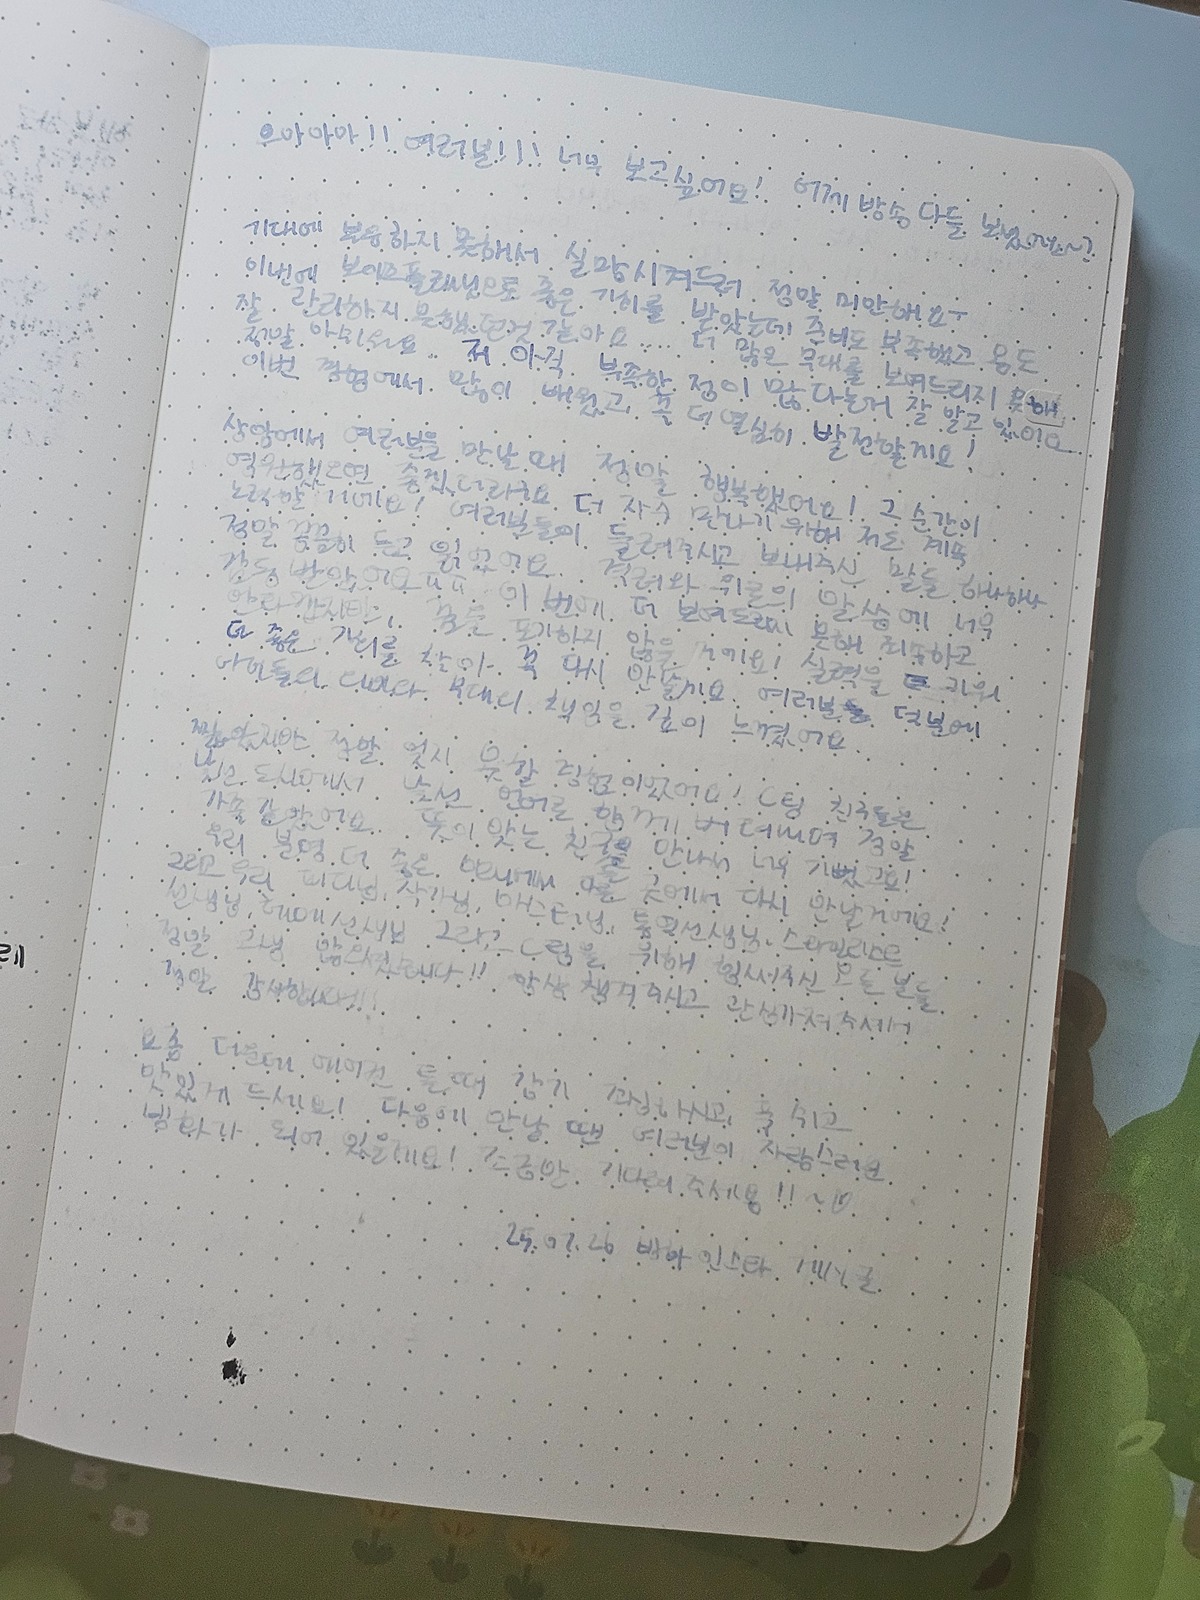 으아아아!! 여러분!!! 너무 보고싶어요! 어제 방송 다들 보셨어요~?
기대에 보응하지 못해서 실망시켜드려 정말 미안해요ㅜ
이번에 보이즈플래닛으로 좋은 기회를 받았는데 준비도 부족했고 몸도
잘 관리하지 못했던것 같아요.... 더 많은 무대를 보여드리지 못해
정말 아쉬워요.. 저 아직 부족한 점이 많다는거 잘 알고 있어요
이번 경험에서 많이 배웠고 꼭 더 열심히 발전할게요!
상암에서 여러분을 만날 때 정말 행복했어요! 그 순간이
영원했으면 좋겠더라구요. 더 자주 만나기 위해 저도 계속
노력할 거예요! 여러분들이 들려주시고 보내주신 말들 하나하나
정말 꼼꼼히 듣고 읽었어요. 격려와 위로의 말씀에 너무
감동 받았어요ㅠㅠ 이번에 더 보여드리지 못해 죄송하고
안타깝지만, 꿈을 포기하지 않을 거예요! 실력을 키워
더 좋은 기회를 찾아 꼭 다시 만날게요. 여러분들 덕분에
아이돌의 의미와 무대의 책임을 깊이 느꼈어요.
짧았지만 정말 잊지 못할 경험이었어요! C팀 친구들은
낯선 도시에서 낯선 언어로 함께 버텨내며 정말
가족 같았어요. 뜻이 맞는 친구들 만나서 너무 기뻤고요!
우리 분명 더 좋은 다른 곳에서 다시 만날거예요!
그리고 우리 피디님, 작가님, 마스터님, 통역선생님, 스타일리스트
선생님, 헤메선생님 그리고 C팀을 위해 힘써주신 모든 분들
정말 고생 많으셨습니다!! 항상 챙겨주시고 관심가져주셔서
정말 감사합니다!!
요즘 더운데 에어컨 틀 때 감기 조심하시고 푹 쉬고
맛있게 드세요! 다음에 만날 땐 여러분이 자랑스러운
빙화가 되어 있을게요! 조금만 기다려주세용!! ~
25.07.26 빙화 인스타 게시글
레